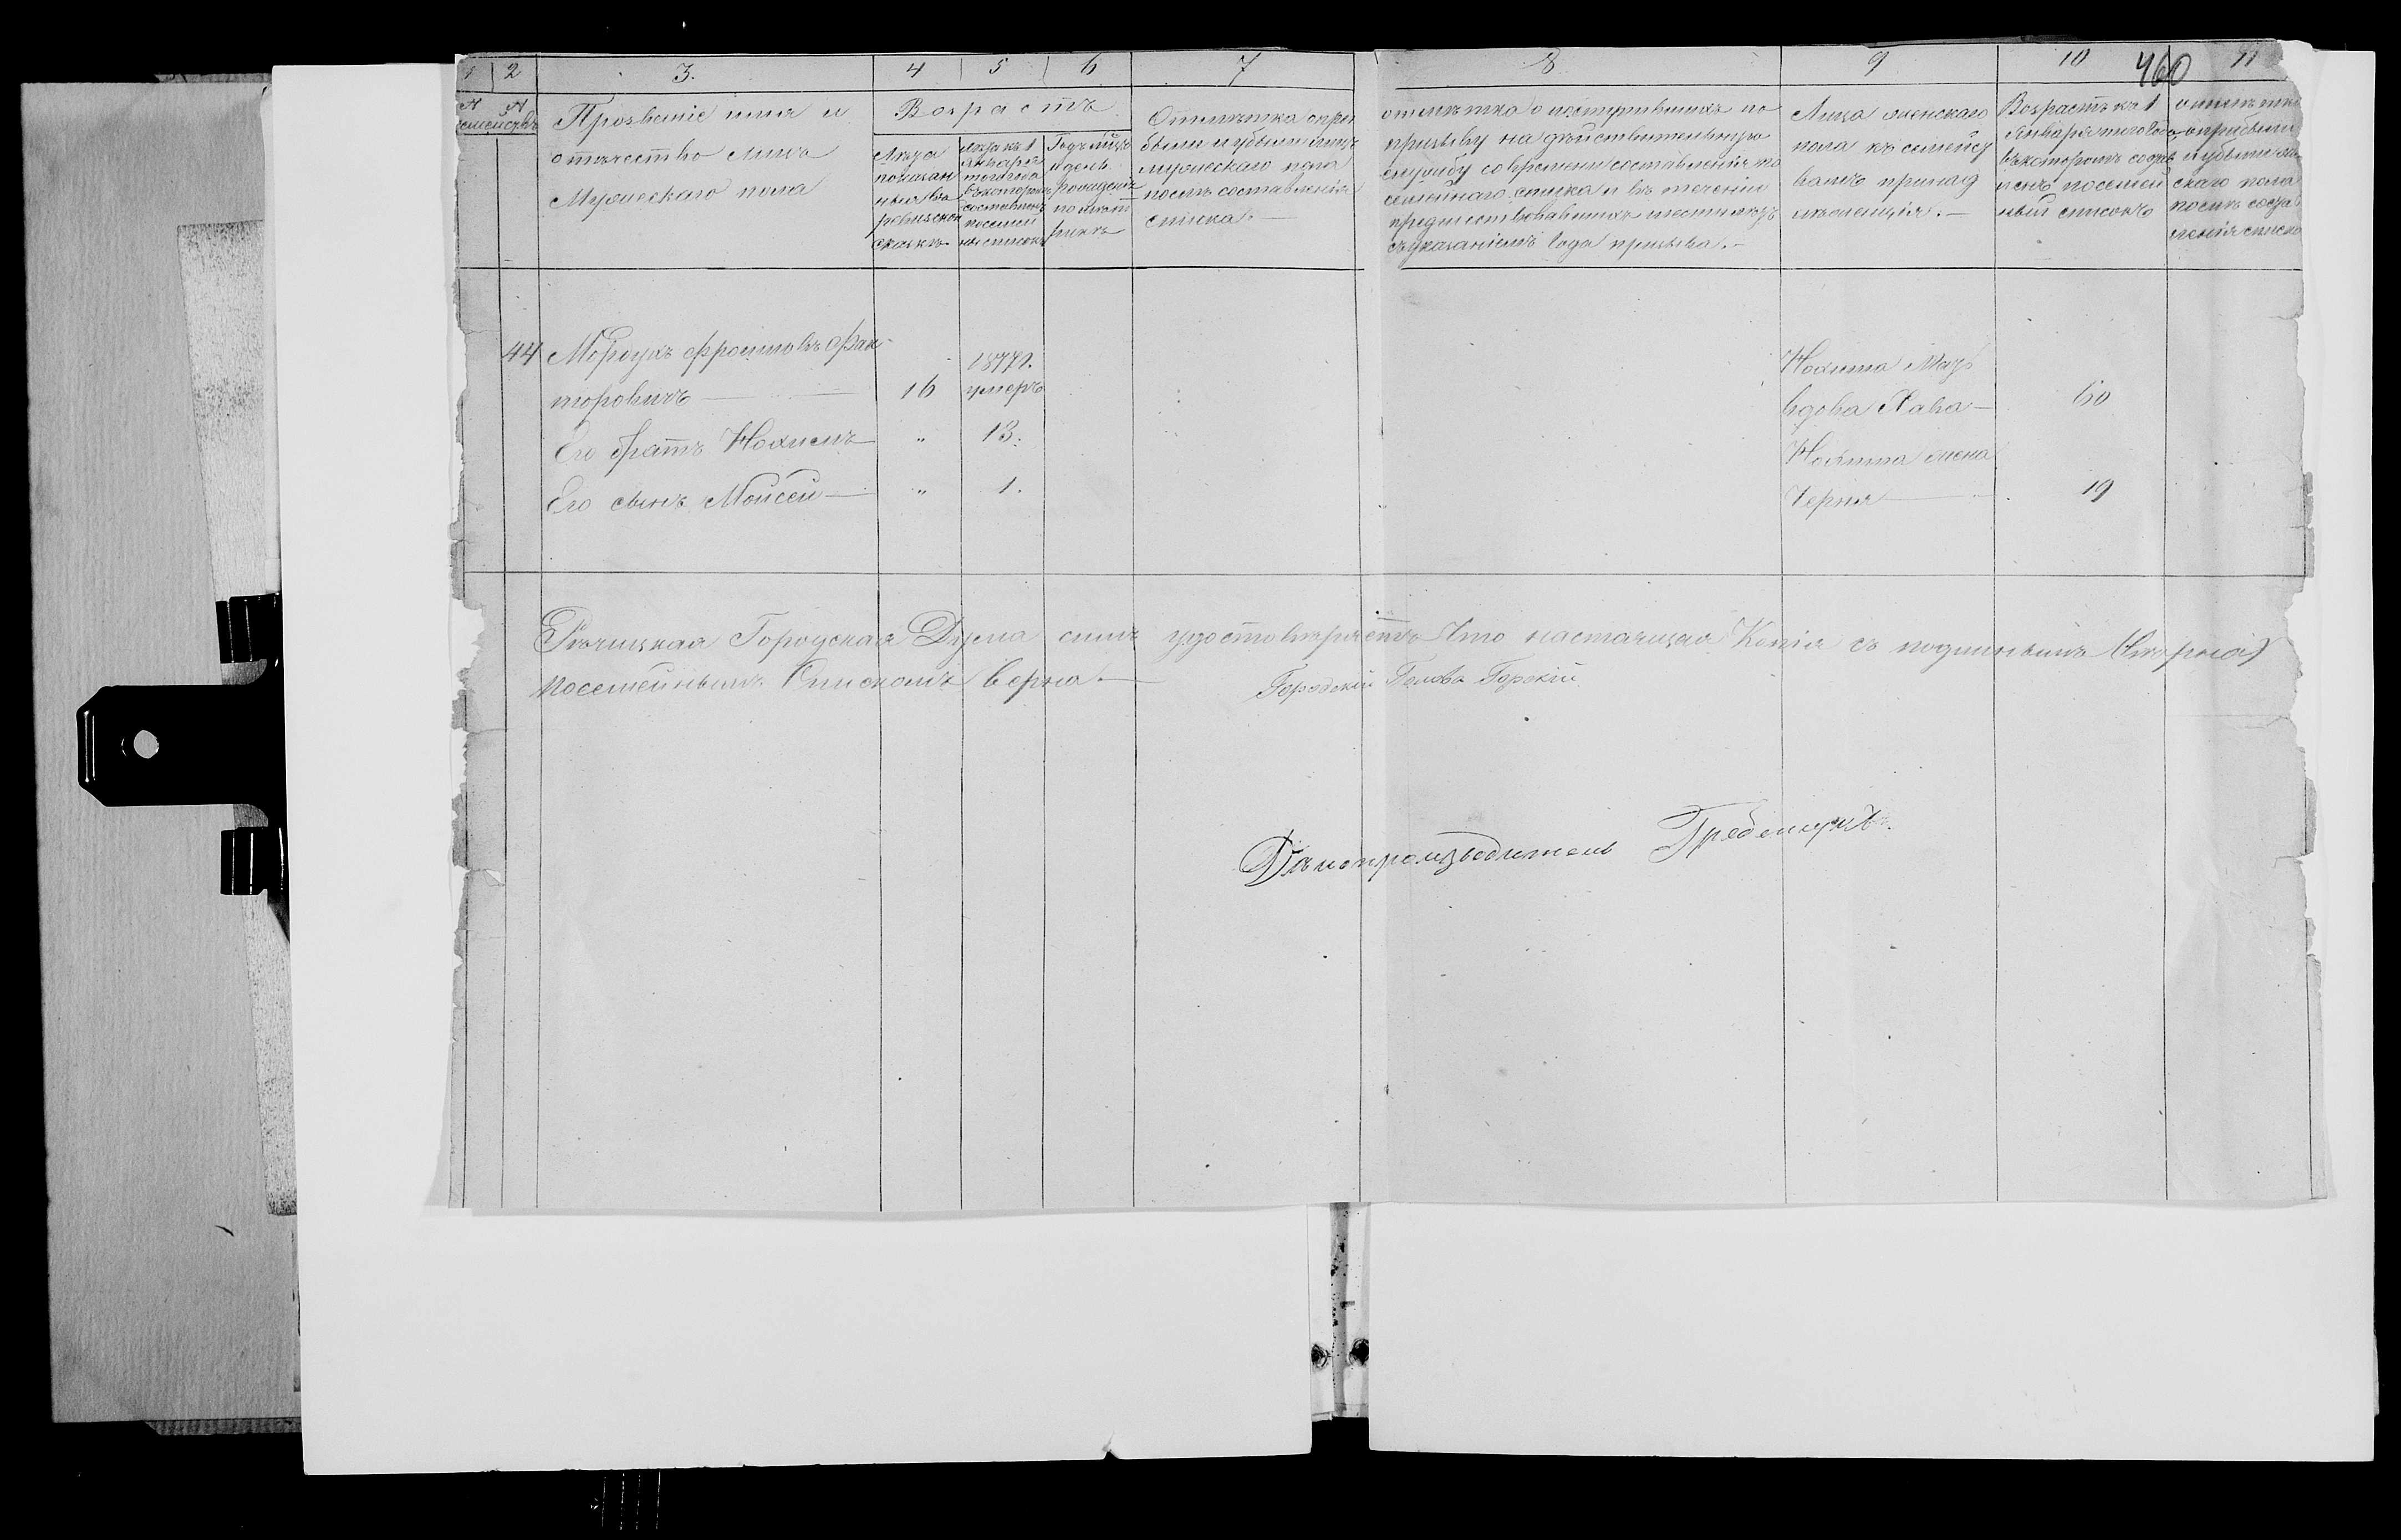 1 2 3. 4 5 6 7 8 9 10 460 11
№ №
семействъ
Прозвание имя и
отчество лицъ
Мужескаго пола
Возрастъ
Лѣта
показан
ныя въ
ревизской
сказкѣ
Лѣта къ 1
Января
того года
въ которомъ
составленъ
посемей
ный списокъ
Годъ мѣсяцъ
и день
рожденія
по метри
камъ
Отмѣтка о при
были и убыли лицъ
мужескаго пола
послѣ составленія
списка.—
отмѣтка о поступившихъ по
призыву на дѣйствительную
службу со времени составленія по
семейнаго списка и въ теченіи
предшествовавшихъ шести лѣтъ
съ указаніемъ года призыва.—
Лица женскаго
пола къ семей
вамъ принад
лежащія.—
Возрастъ къ 1
Января того года
въ которомъ состав
ленъ посемей
ный списокъ
отмѣтка
о прибыли
и убыли жен
скаго пола
послѣ соста
вленія списка
44 Мордухъ Фроимовъ Фак-
торовичъ — 16 1877г. умеръ
Его братъ Нохимъ — " 13.
Его сынъ Мойсей — " 1.
Нохима Мать
вдова Хава — 60
Нохима жена
Черня — 19
Рѣчицкая Городская Дума симъ удостовѣряетъ Что настоящая Копія съ подлиннымъ (Вторнa)
посемейнымъ Спискомъ верна.—
Городской Голова Горскій
Дѣлопроизводитель